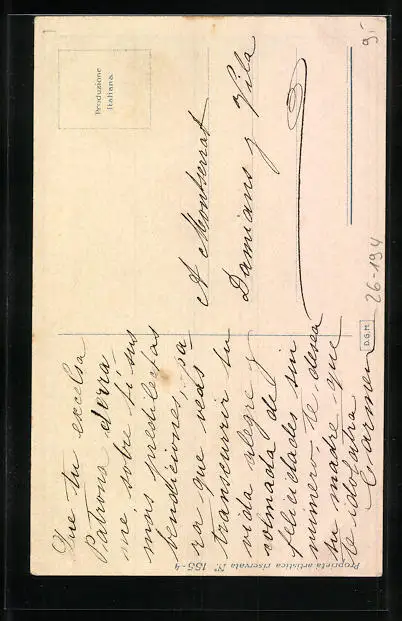 Que tu excelsa
Patrona derra-
me sobre ti sus
más predilectas
bendiciones, pa-
ra que veas
transcurrir tu
vida alegre y
colmada de
felicidades sin
número, te desea
tu madre que
te idolatra
Carmen
Produzione
Italiana.
A Montserrat
Damians y Vila
D.G.M.
26-194
Proprietà artistica riservata N° 155-4